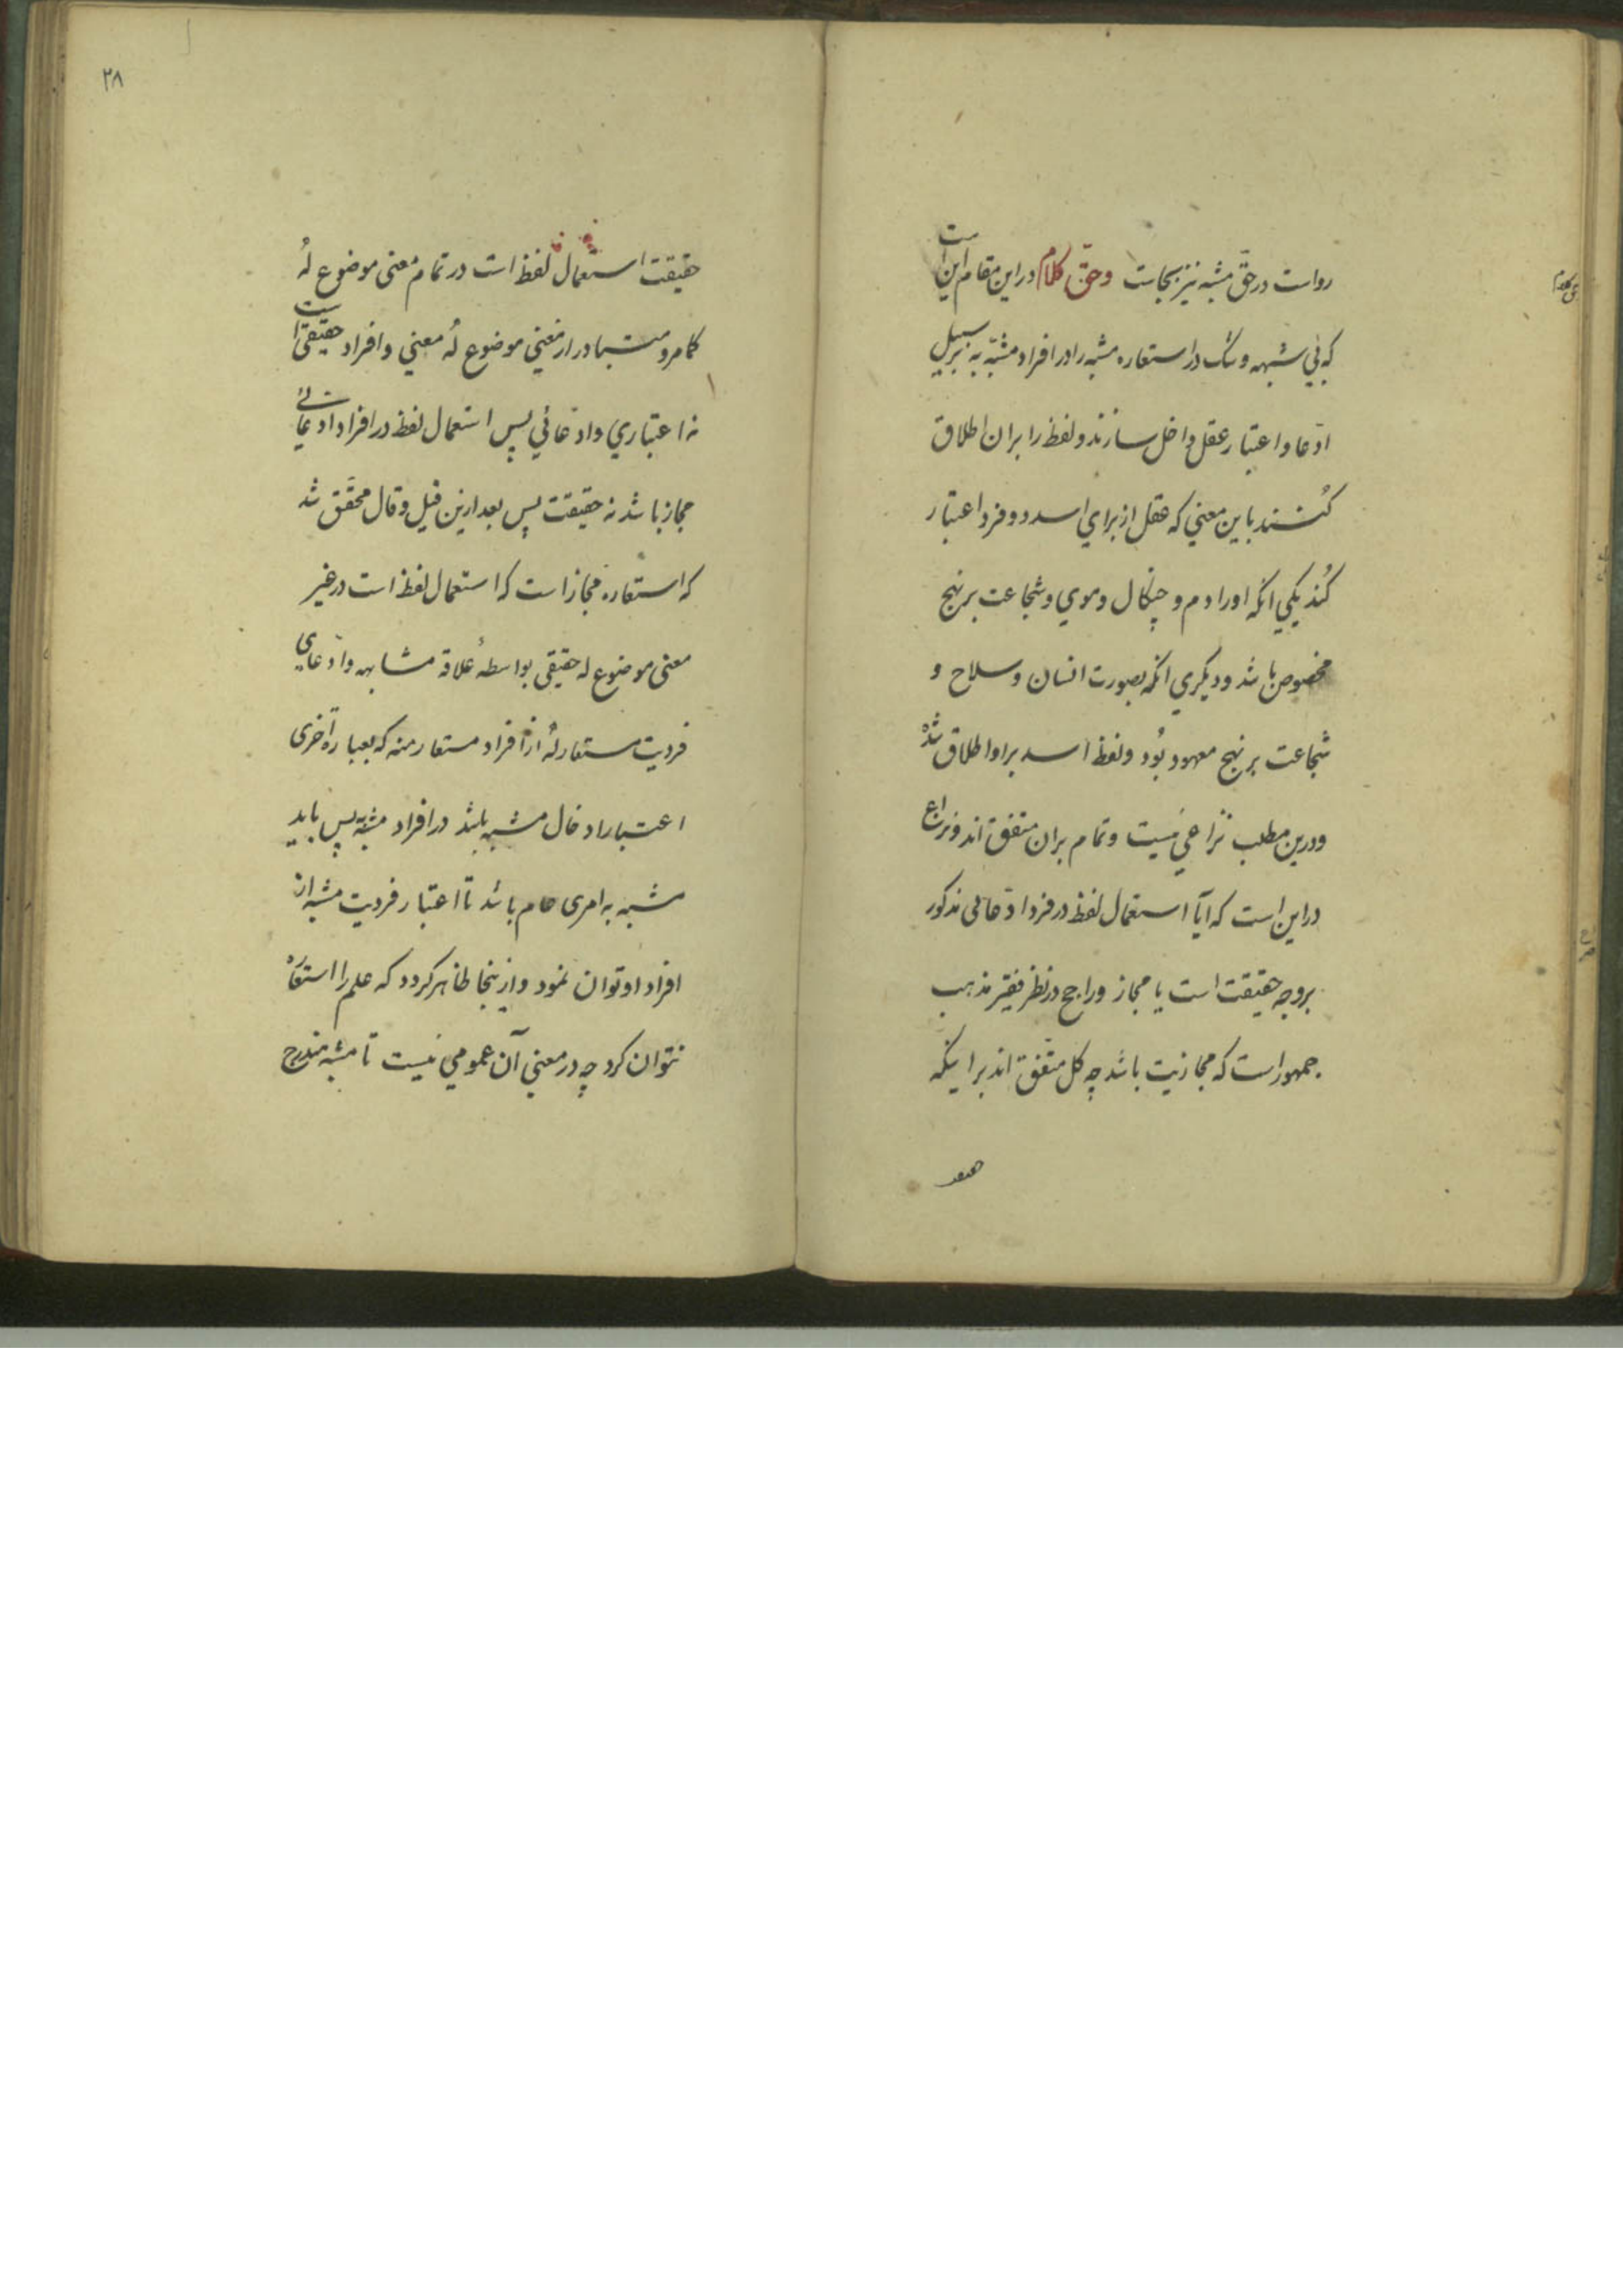 رواست در حقّ مشبه نیز بجاست وحقّ کلام در این مقام این است
که بی شبهه وشک در استعاره مشبه را در افراد مشبّه به بر سبیل
ادّعا واعتبار عقل داخل سازند ولفظ را بران اطلاق
کُنند باین معنی که عقل از برای اسد دو فرد اعتبار
کُند یکی انکه اورا دم و چنکال وموی وشجاعت بر نهج
مخصوص باشد ودیکری انکه بصورت انسان وسلاح و
شجاعت بر نهج معهود بُود ولفظ اسد براو اطلاق شده
ودرین مطلب نزاعی نیست وتمام بران متفق اند ونزاع
در این است که آیا استعمال لفظ در فرد ادّعائی مذکور
بروجه حقیقت است یا مجاز وراجح در نظر فقیر مذهب
جمهور است که مجازیت باشد چه کل متّفق اند بر اینکه
۲۸
حقیقت استعمال لفظ است در تمام معنی موضوع لهُ
کما مر و متبادر از معنی موضوع لهُ معنی وافراد حقیقی است
نه اعتباری وادّعائی پس استعمال لفظ در افراد ادعائی
مجاز باشد نه حقیقت پس بعد ازین قیل وقال محقّق شد
که استعاره مجاز است که استعمال لفظ است در غیر
معنی موضوع له حقیقی بواسطهٔ علاقه مشابهه وادّعای
فردیت مستعار لهُ از افراد مستعار منه که بعباره اخری
اعتبار ادخال مشبه باشد در افراد مشبّه به پس باید
مشبه به امری عام باشد تا اعتبار فردیت مشبه از
افراد او توان نمود وازینجا ظاهر کردد که علم را استعاره
نتوان کرد چه در معنی آن عمومی نیست تا مشبه مندرج